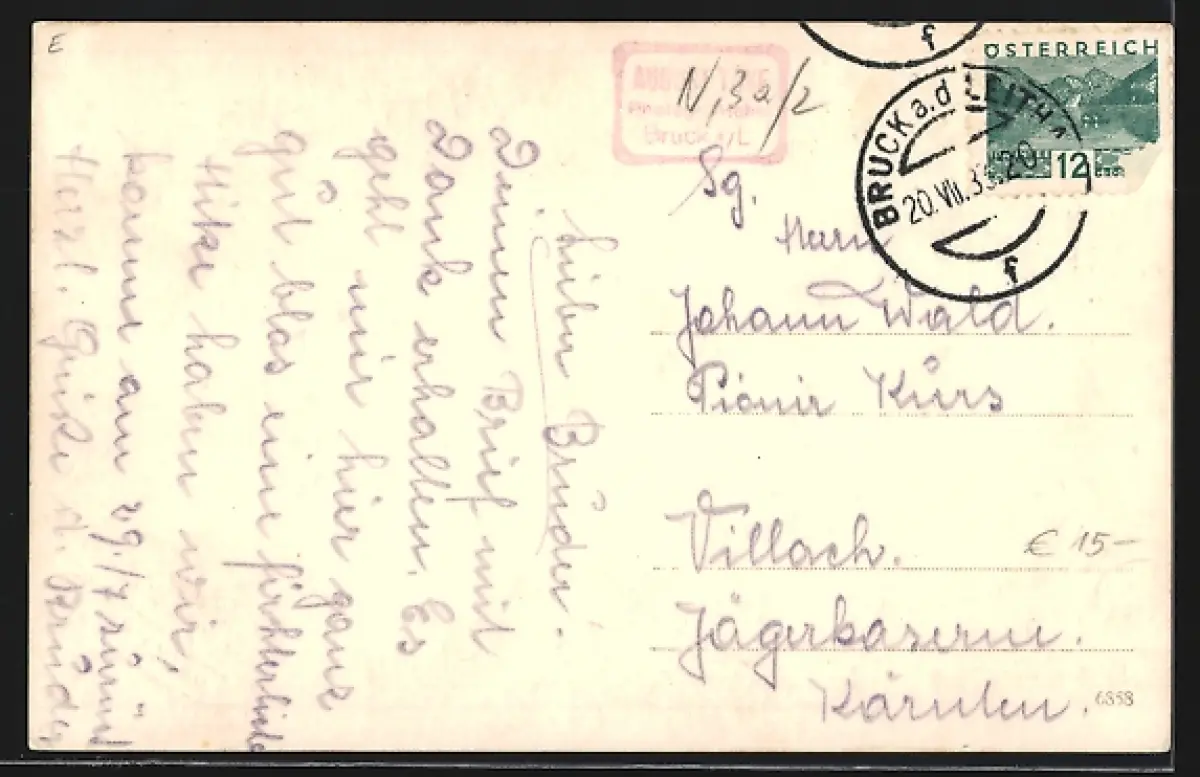 E
N, 3a/2
Bruck a/L
ÖSTERREICH
12
BRUCK a.d. LEITHA
20.VII.33.20
f
f
Sg.
Herrn
Johann Wald.
Pionir Kurs
Villach.
Jägerkaserne.
Kärnten.
€ 15-
6858
Lieber Bruder.
Deinen Brief mit
Dank erhalten. Es
geht mir hier ganz
gut blos eine fürchterliche
Hitze haben wir,
komme am 29./7 zurück
Herzl. Grüße d. Bruder